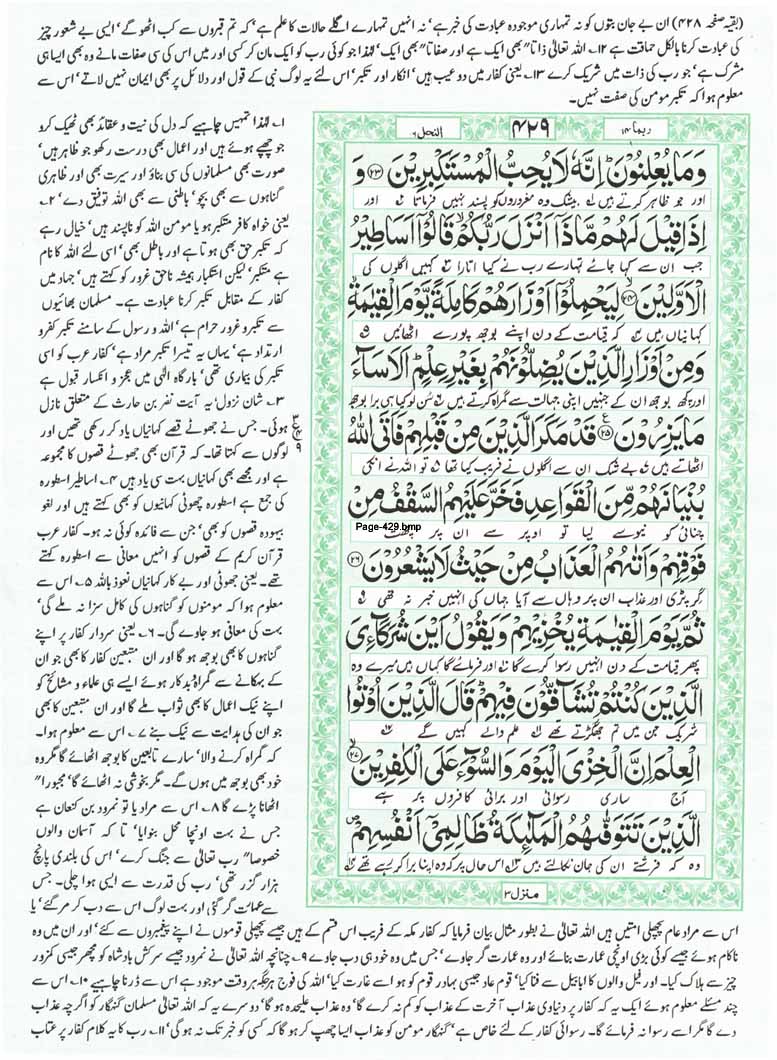 (بقیہ صفحہ ۴۲۸) ان بے جان بتوں کو نہ تمہاری موجودہ عبادت کی خبر ہے' نہ انہیں تمہارے اگلے حالات کا علم ہے' کہ تم قبروں سے کب اٹھو گے' ایسی بے شعور چیز
کی عبادت کرنا بالکل حماقت ہے ۱۲۔ اللہ تعالیٰ ذاتا" بھی ایک ہے اور صفاتا" بھی ایک' لہٰذا جو کوئی رب کو ایک مان کر کسی اور میں اس کی سی صفات مانے وہ بھی ایسا ہی
مشرک ہے' جو رب کی ذات میں شریک کرے ۱۳۔ یعنی کفار میں دو عیب ہیں' انکار اور تکبر' اس لئے یہ لوگ نبی کے قول اور دلائل پر بھی ایمان نہیں لاتے' اس سے
معلوم ہوا کہ تکبر مومن کی صفت نہیں۔
ربما ۱۴
۴۲۹
النحل ۱۶
وَمَا يُعْلِنُوْنَ ؕ اِنَّهٗ لَا يُحِبُّ الْمُسْتَكْبِرِيْنَ ۝۲۳ وَ
اور جو ظاہر کرتے ہیں بیشک وہ مغروروں کو پسند نہیں فرماتا اور
اِذَا قِيْلَ لَهُمْ مَّاذَاۤ اَنْزَلَ رَبُّكُمْ ۙ قَالُوْۤا اَسَاطِيْرُ
جب ان سے کہا جائے تمہارے رب نے کیا اتارا کہیں اگلوں کی
الْاَوَّلِيْنَ ۝۲۴ لِيَحْمِلُوْۤا اَوْزَارَهُمْ كَامِلَةً يَّوْمَ الْقِيٰمَةِ ۙ
کہانیاں ہیں کہ قیامت کے دن اپنے بوجھ پورے اٹھائیں
وَمِنْ اَوْزَارِ الَّذِيْنَ يُضِلُّوْنَهُمْ بِغَيْرِ عِلْمٍ ؕ اَلَا سَآءَ
اور کچھ بوجھ ان کے جنہیں اپنی جہالت سے گمراہ کرتے ہیں سن لو کیا ہی برا بوجھ
مَا يَزِرُوْنَ ۝۲۵ قَدْ مَكَرَ الَّذِيْنَ مِنْ قَبْلِهِمْ فَاَتَى اللّٰهُ
اٹھاتے ہیں بے شک ان سے اگلوں نے فریب کیا تھا تو اللہ نے انکی
بُنْيَانَهُمْ مِّنَ الْقَوَاعِدِ فَخَرَّ عَلَيْهِمُ السَّقْفُ مِنْ
چنائی کو نیو سے لیا تو اوپر سے ان پر چھت
Page-429.bmp
فَوْقِهِمْ وَاَتٰىهُمُ الْعَذَابُ مِنْ حَيْثُ لَا يَشْعُرُوْنَ ۝۲۶
گر پڑی اور عذاب ان پر وہاں سے آیا جہاں کی انہیں خبر نہ تھی
ثُمَّ يَوْمَ الْقِيٰمَةِ يُخْزِيْهِمْ وَيَقُوْلُ اَيْنَ شُرَكَآءِىَ
پھر قیامت کے دن انہیں رسوا کرے گا اور فرمائے گا کہاں ہیں میرے وہ
الَّذِيْنَ كُنْتُمْ تُشَآقُّوْنَ فِيْهِمْ ؕ قَالَ الَّذِيْنَ اُوْتُوا
شریک جن میں تم جھگڑتے تھے علم والے کہیں گے
الْعِلْمَ اِنَّ الْخِزْىَ الْيَوْمَ وَالسُّوْٓءَ عَلَى الْكٰفِرِيْنَ ۝۲۷
آج ساری رسوائی اور برائی کافروں پر ہے
الَّذِيْنَ تَتَوَفّٰىهُمُ الْمَلٰٓئِكَةُ ظَالِمِىْۤ اَنْفُسِهِمْ
وہ کہ فرشتے ان کی جان نکالتے ہیں اس حال پر کہ وہ اپنا برا کر رہے تھے
منزل ۳
۱۔ لہٰذا تمہیں چاہیے کہ دل کی نیت و عقائد بھی ٹھیک کرو
جو چھپے ہوئے ہیں اور اعمال بھی درست رکھو جو ظاہر ہیں'
صورت بھی مسلمانوں کی سی بناؤ اور سیرت بھی اور ظاہری
گناہوں سے بھی بچو' باطنی سے بھی اللہ توفیق دے ۲۔
یعنی خواہ کافر متکبر ہو یا مومن اللہ کو ناپسند ہیں' خیال رہے
کہ تکبر حق بھی ہوتا ہے اور باطل بھی' اسی لئے اللہ کا نام
ہے متکبر' لیکن استکبار ہمیشہ ناحق غرور کو کہتے ہیں' جہاد میں
کفار کے مقابل تکبر کرنا عبادت ہے۔ مسلمان بھائیوں
سے تکبر و غرور حرام ہے' اللہ و رسول کے سامنے تکبر کفر و
ارتداد ہے' یہاں یہ تیسرا تکبر مراد ہے' کفار عرب کو اسی
تکبر کی بیماری تھی' بارگاہ الٰہی میں عجز و انکسار قبول ہے
۳۔ شان نزول' یہ آیت نضر بن حارث کے متعلق نازل
ہوئی۔ جس نے جھوٹے قصے کہانیاں یاد کر رکھی تھیں اور
لوگوں سے کہتا تھا۔ کہ قرآن بھی جھوٹے قصوں کا مجموعہ
ہے اور مجھے بھی کہانیاں بہت سی یاد ہیں ۴۔ اساطیر اسطورہ
کی جمع ہے اسطورہ جھوٹی کہانیوں کو بھی کہتے ہیں اور لغو
بیہودہ قصوں کو بھی' جن سے فائدہ کوئی نہ ہو۔ کفار عرب
قرآن کریم کے قصوں کو انہیں معانی سے اسطورہ کہتے
تھے۔ یعنی جھوٹی اور بے کار کہانیاں نعوذ باللہ ۵۔ اس سے
معلوم ہوا کہ مومنوں کو گناہوں کی کامل سزا نہ ملے گی'
بہت کی معافی ہو جاوے گی۔ ۶۔ یعنی سردار کفار پر اپنے
گناہوں کا بھی بوجھ ہو گا اور ان متبعین کفار کا بھی جو ان
کے بہکانے سے گمراہ و بدکار ہوئے ایسے ہی علماء و مشائخ کو
اپنے نیک اعمال کا بھی ثواب ملے گا اور ان متبعین کا بھی
جو ان کی ہدایت سے نیک بنے ۷۔ اس سے معلوم ہوا۔
کہ گمراہ کرنے والا' سارے تابعین کا بوجھ اٹھائے گا مگر وہ
خود بھی بوجھ میں ہوں گے۔ مگر بخوشی نہ اٹھائے گا' مجبورا"
اٹھانا پڑے گا ۸۔ اس سے مراد یا تو نمرود بن کنعان ہے
جس نے بہت اونچا محل بنوایا' تا کہ آسمان والوں
خصوصا" رب تعالیٰ سے جنگ کرے' اس کی بلندی پانچ
ہزار گز تھی' رب کی قدرت سے ایسی ہوا چلی۔ جس
سے عمارت گر گئی اور بہت لوگ اس سے دب کر مر گئے' یا
اس سے مراد عام پچھلی امتیں ہیں اللہ تعالیٰ نے بطور مثال بیان فرمایا کہ کفار مکہ کے فریب اس قسم کے ہیں جیسے پچھلی قوموں نے اپنے پیغمبروں سے کئے' اور ان میں وہ
ناکام ہوئے جیسے کوئی بڑی اونچی عمارت بنائے اور وہ عمارت گر جاوے' جس میں وہ خود ہی دب جاوے ۹۔ چنانچہ اللہ تعالیٰ نے نمرود جیسے سرکش بادشاہ کو مچھر جیسی کمزور
چیز سے ہلاک کیا۔ اور فیل والوں کا ابابیل سے فنا کیا' قوم عاد جیسی بہادر قوم کو ہوا سے غارت کیا' اللہ کی فوج ہر جگہ ہر وقت موجود ہے اس سے ڈرنا چاہیے ۱۰۔ اس سے
چند مسئلے معلوم ہوئے ایک یہ کہ کفار پر دنیاوی عذاب آخرت کے عذاب کو کم نہ کرے گا' وہ عذاب علیحدہ ہو گا' دوسرے یہ کہ اللہ تعالیٰ مسلمان گنہگار کو اگرچہ عذاب
دے گا مگر اسے رسوا نہ فرمائے گا۔ رسوائی کفار کے لئے خاص ہے' گنہگار مومن کو عذاب ایسا چھپ کر ہو گا کہ کسی کو خبر تک نہ ہو گی' ۱۱۔ رب کا یہ کلام کفار پر عتاب